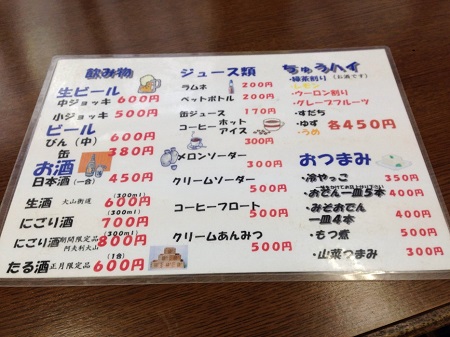 飲み物
生ビール
中ジョッキ 600円
小ジョッキ 500円
ビール
びん(中) 600円
缶 380円
お酒
日本酒(一合) 450円
(300ml)
生酒 大山街道 600円
(300ml)
にごり酒 700円
(300ml)
にごり酒 期間限定品 阿夫利大山 800円
(1合)
たる酒 正月限定品 600円
ジュース類
ラムネ 200円
ペットボトル 200円
缶ジュース 170円
コーヒー ホット
アイス 300円
メロンソーダー
300円
クリームソーダー
500円
コーヒーフロート
500円
クリームあんみつ
500円
ちゅうハイ
・緑茶割り(お酒です)
・レモン
・ウーロン割り
・グレープフルーツ
・すだち
・ゆず 各450円
・うめ
おつまみ
・冷やっこ 350円
・おでん一皿5本 400円
・みそおでん
一皿4本 400円
・もつ煮 500円
・山菜つまみ 300円